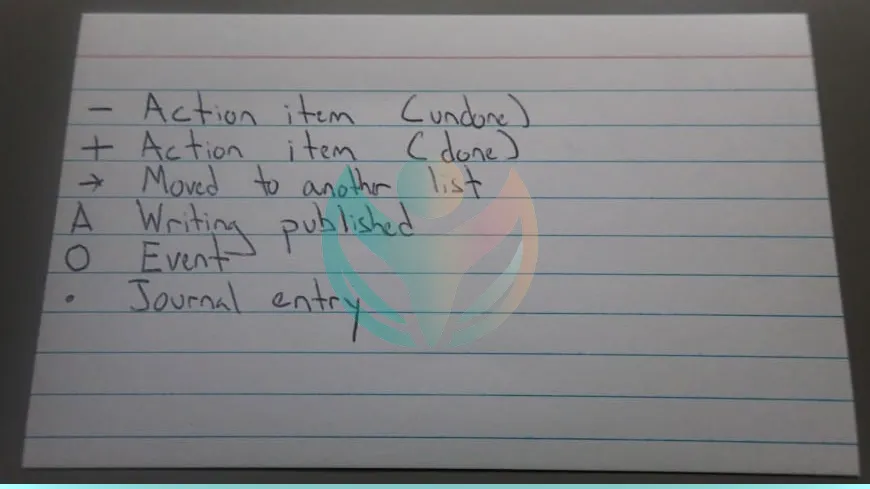 – Action item (undone)
+ Action item (done)
→ Moved to another list
A Writing published
O Event
• Journal entry